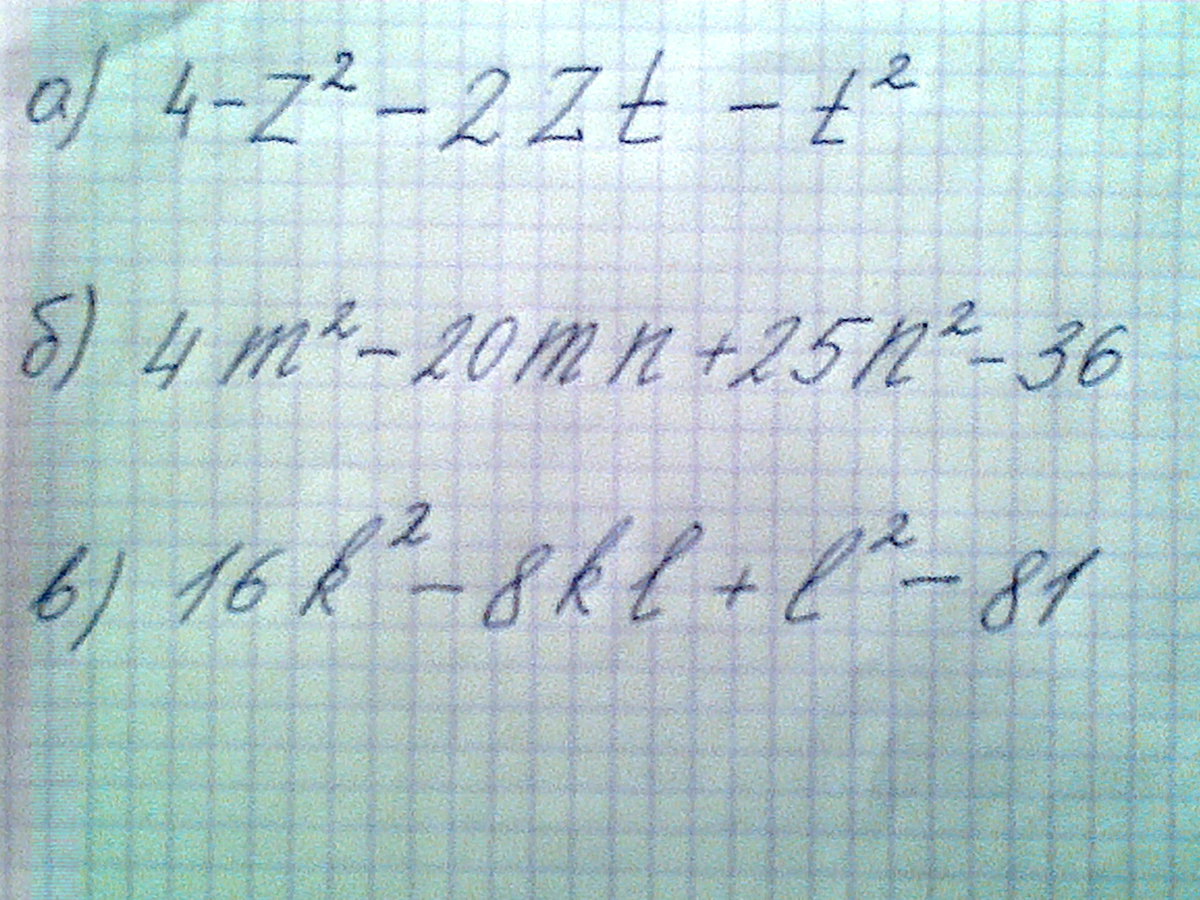 а) 4-z² - 2zt - t²
б) 4m² - 20mn + 25n² - 36
в) 16k² - 8kl + l² - 81